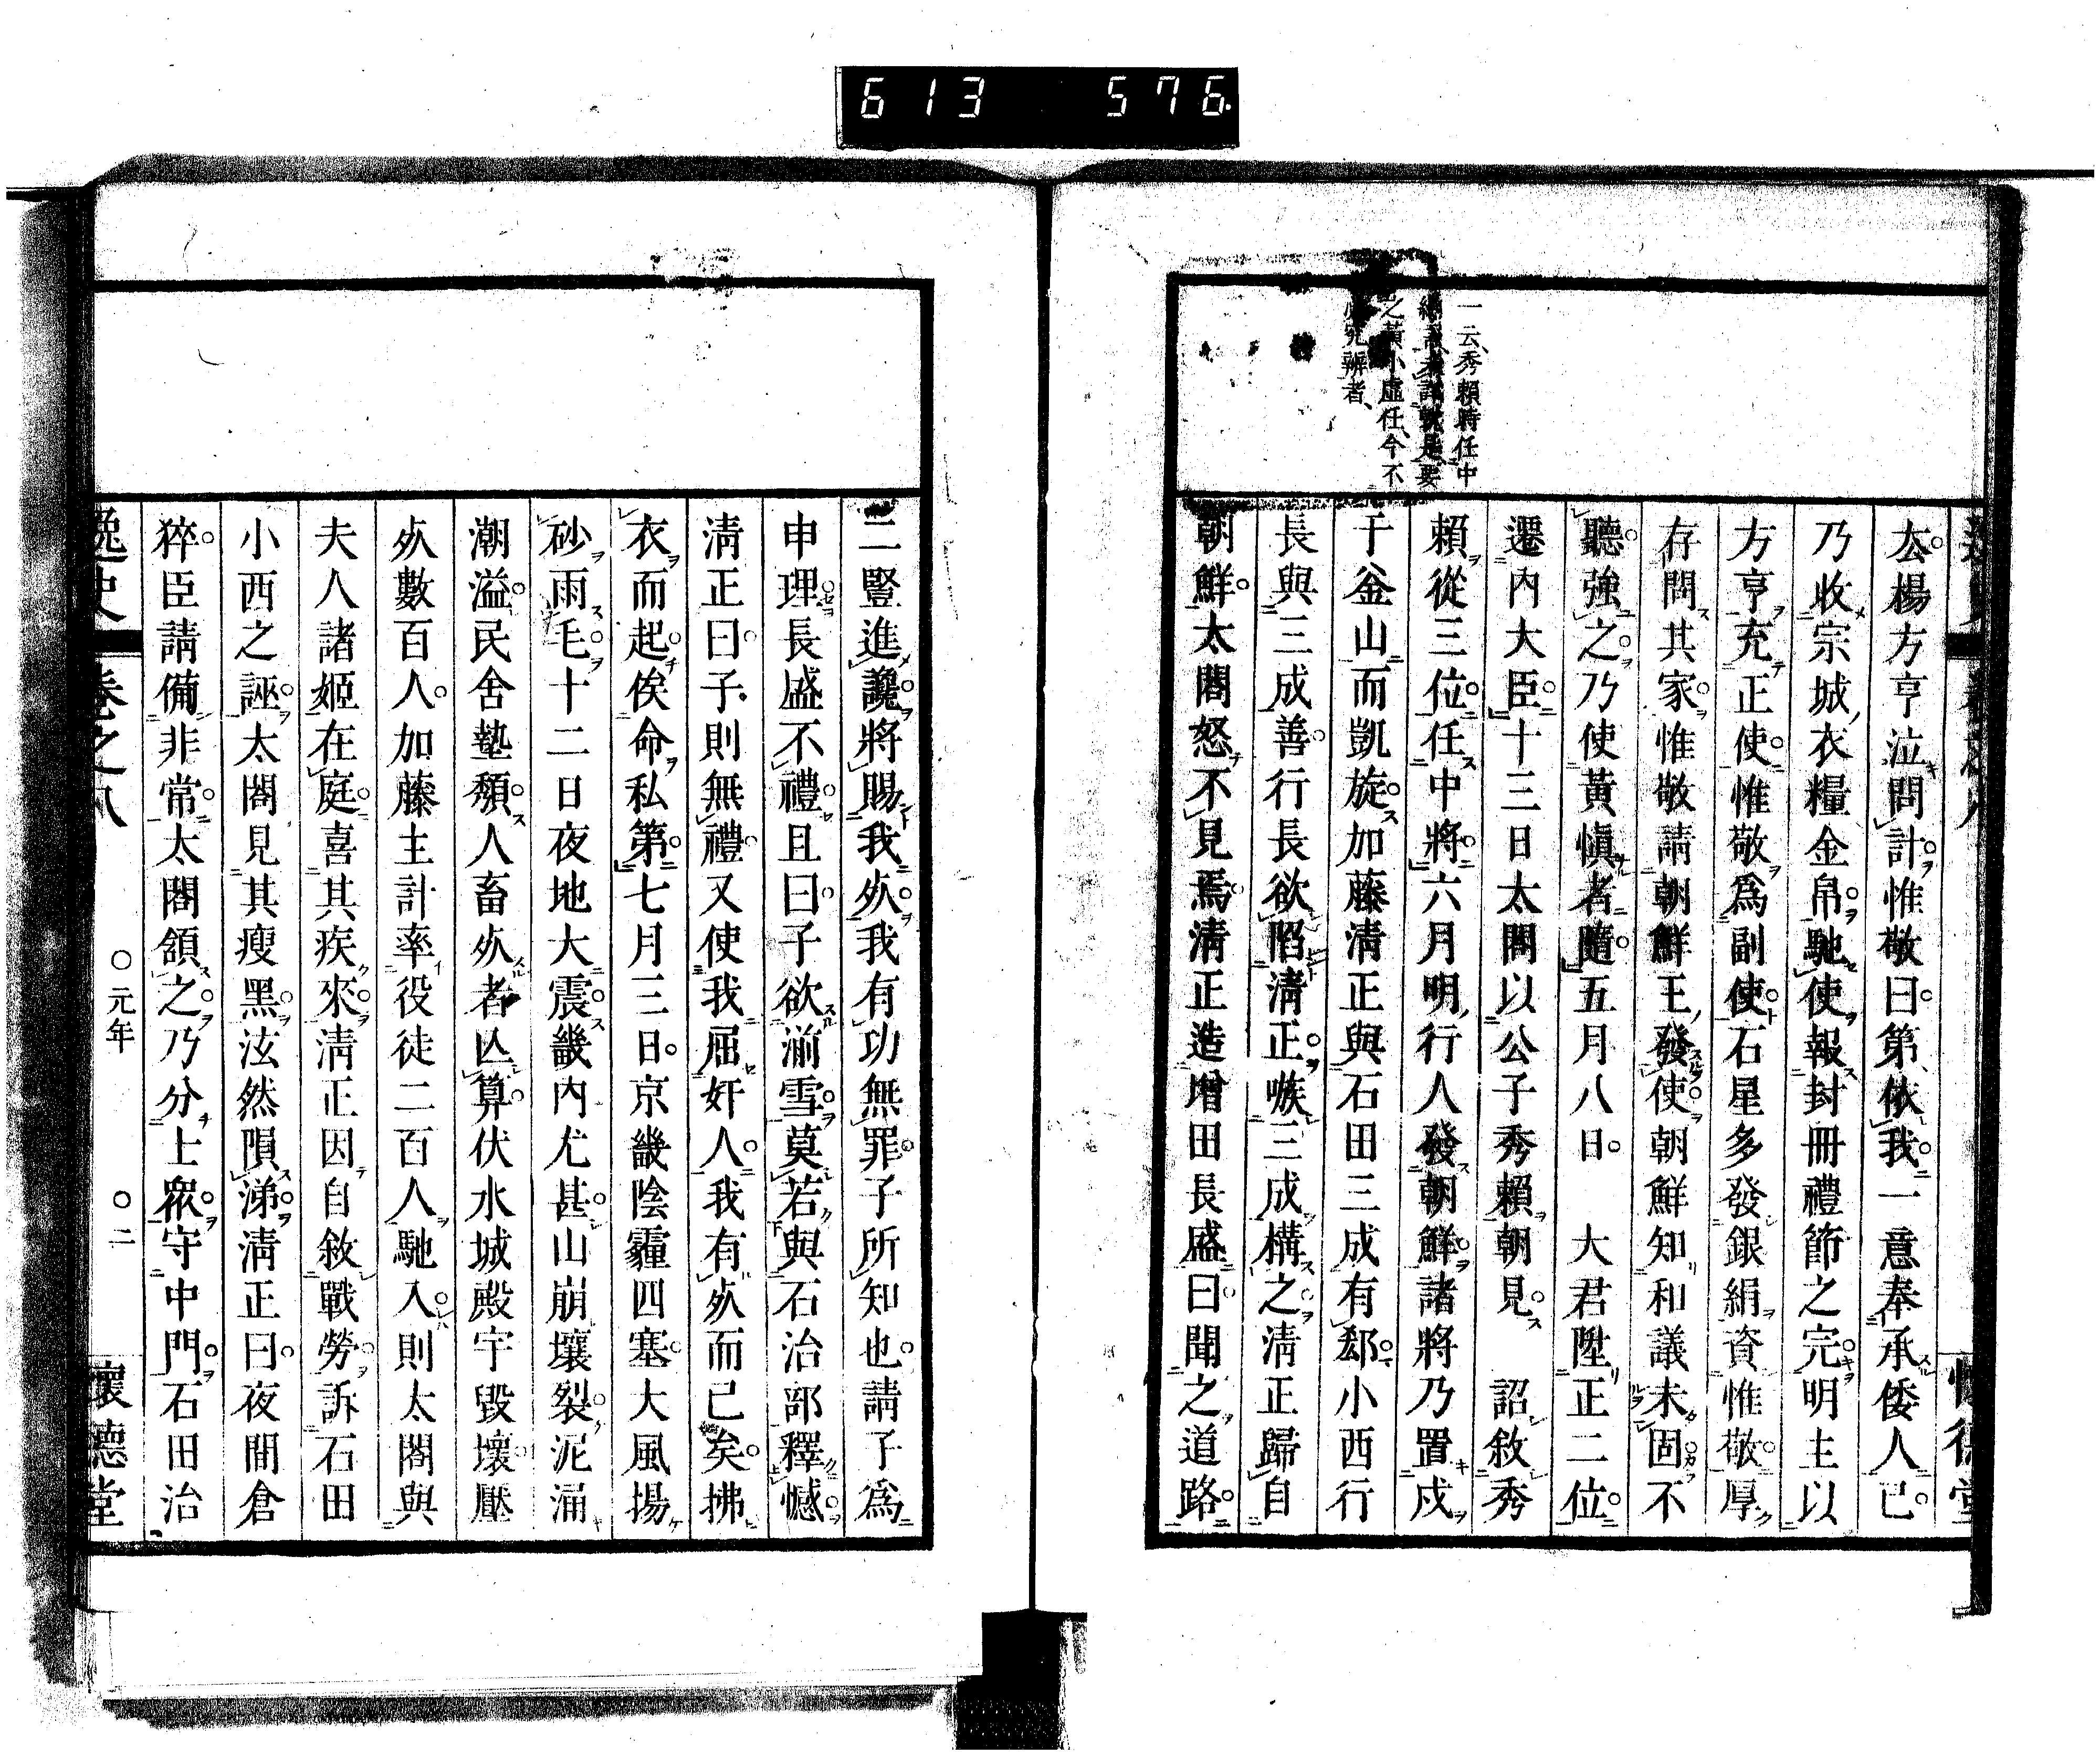 613 576
一云、秀賴時任中
之黃小虛任、今不
究辨者、
厺楊方亨泣問計惟敬曰第依我一意奉承倭人已
乃收宗城衣糧金帛馳使報封冊禮節之完明主以
方亨充正使惟敬爲副使石星多發銀絹資惟敬厚
存問其家惟敬請朝鮮王發使朝鮮知和議未固不
聽強之乃使黃愼者隨五月八日 大君陞正二位
遷内大臣十三日太閤以公子秀賴朝見 詔敘秀
賴從三位任中將六月明行人發朝鮮諸將乃置戍
于釜山而凱旋加藤淸正與石田三成有郄小西行
長與三成善行長欲陷淸正嗾三成構之淸正歸自
朝鮮太閤怒不見焉淸正造增田長盛曰聞之道路
二豎進讒將賜我㱁我有功無罪子所知也請子爲
申理長盛不禮且曰子欲湔雪莫若與石治部釋憾
淸正曰子則無禮又使我屈奸人我有㱁而已矣拂
衣而起俟命私第七月三日京畿陰霾四塞大風揚
砂雨毛十二日夜地大震畿内尤甚山崩壤裂泥涌
潮溢民舍墊頽人畜㱁者亾算伏水城殿宇毀壞壓
㱁數百人加藤主計率役徒二百人馳入則太閤與
夫人諸姬在庭喜其疾來淸正因自敘戰勞訴石田
小西之誣太閤見其瘦黑泫然隕涕淸正曰夜間倉
猝臣請備非常太閤頷之乃分上衆守中門石田治
逸史 卷之八 〇元年 〇二 懷德堂